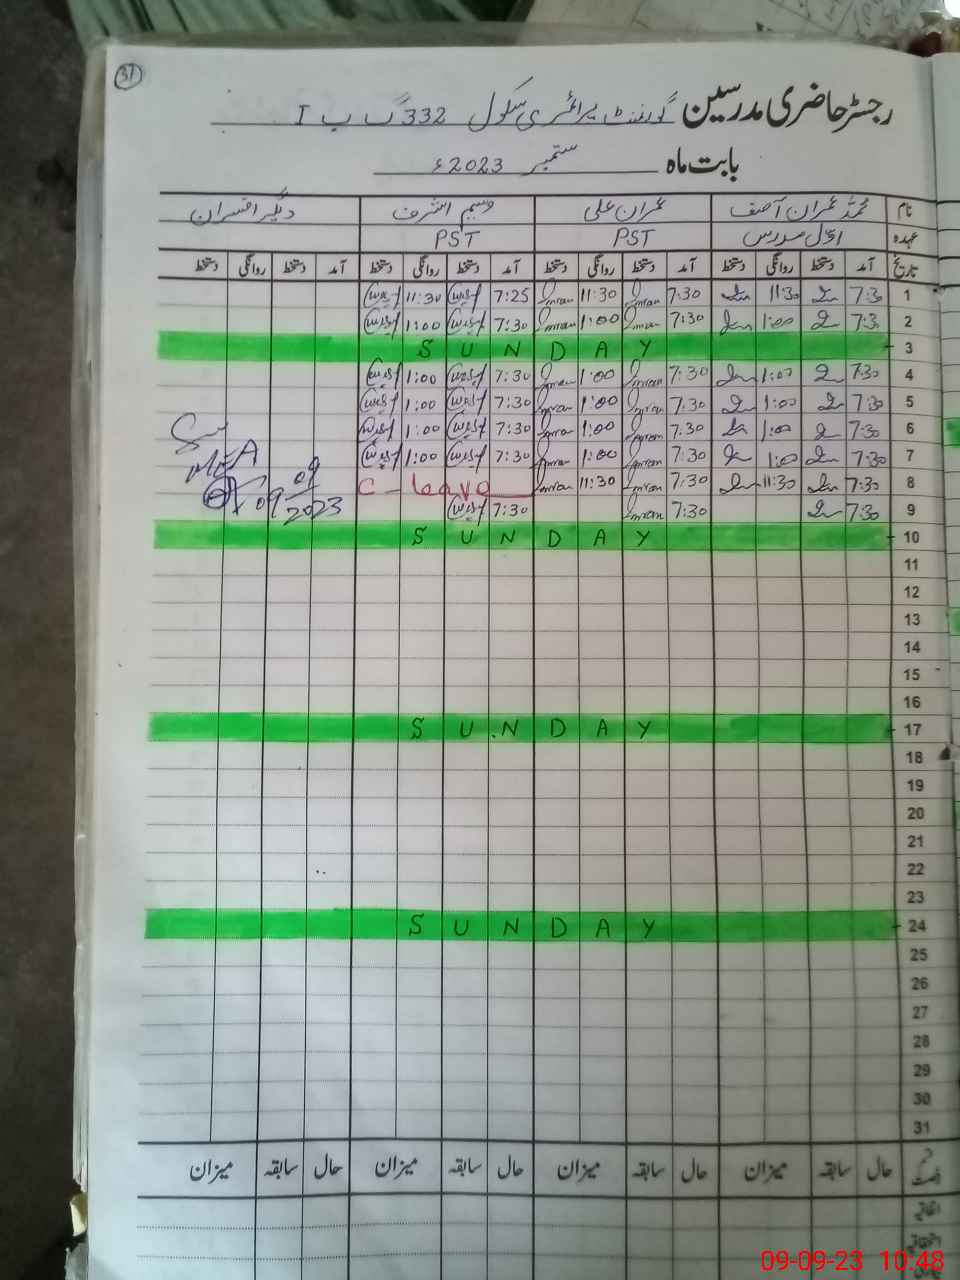 37
رجسٹر حاضری مدرسین گورنمنٹ پرائمری سکول 332 گ ب I
بابت ماہ ستمبر 2023ء
نام محمد عمران آصف عمران علی وسیم اشرف دیگر افسران
عہدہ اول مدرس PST PST
تاریخ آمد دستخط روانگی دستخط آمد دستخط روانگی دستخط آمد دستخط روانگی دستخط آمد دستخط روانگی دستخط
1 7:30 11:30 7:30 Imran 11:30 Imran 7:25 11:30
2 7:30 1:00 7:30 Imran 1:00 Imran 7:30 1:00
3 SUNDAY
4 7:30 1:00 7:30 Imran 1:00 Imran 7:30 1:00
5 7:30 1:00 7:30 Imran 1:00 Imran 7:30 1:00
6 7:30 1:00 7:30 Imran 1:00 Imran 7:30 1:00
7 7:30 1:00 7:30 Imran 1:00 Imran 7:30 1:00
MEA
8 7:30 11:30 7:30 Imran 11:30 Imran C-leave
9 7:30 7:30 Imran 7:30
09/09/2023
10 SUNDAY
11
12
13
14
15
16
17 SUNDAY
18
19
20
21
22
23
24 SUNDAY
25
26
27
28
29
30
31
حال سابقہ میزان حال سابقہ میزان حال سابقہ میزان حال سابقہ میزان
اتفاقیہ
09-09-23 10:48